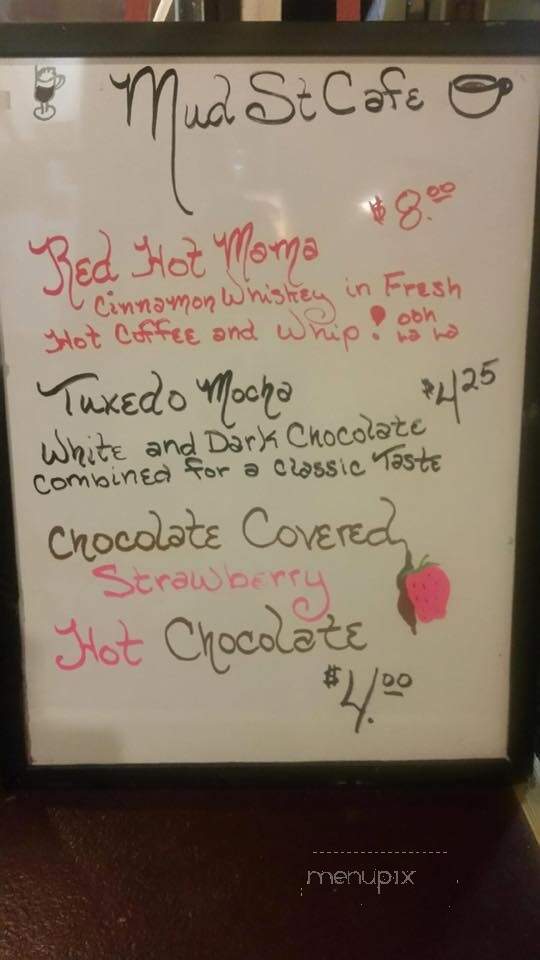 Mud St Cafe
$8.00
Red Hot Mama
Cinnamon Whiskey in Fresh
Hot Coffee and Whip! ooh la la
Tuxedo Mocha $4.25
White and Dark Chocolate
combined for a classic Taste
Chocolate Covered
Strawberry
Hot Chocolate
$4.00
menupix